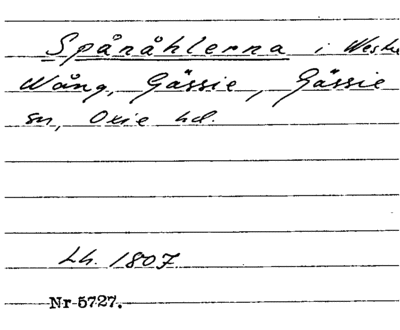 Spånåhlerna i Westre
Wång, Gässie, Gässie
sn, Oxie hd.
Lh. 1807
Nr 5727.